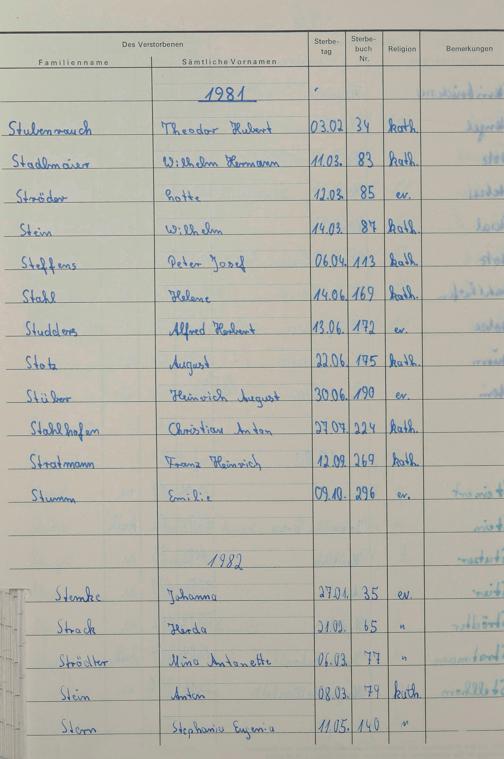 Des Verstorbenen Sterbe- tag Sterbe- buch Nr. Religion Bemerkungen
Familienname Sämtliche Vornamen
1981
Stubenrauch Theodor Hubert 03.02 34 kath.
Stadlmaier Wilhelm Hermann 11.03. 83 kath.
Ströder Lotte 12.03. 85 ev.
Stein Wilhelm 14.03. 87 kath.
Steffens Peter Josef 06.04. 113 kath.
Stahl Helene 14.06. 169 kath.
Studders Alfred Herbert 13.06. 172 ev.
Stotz August 22.06. 175 kath.
Stüber Heinrich August 30.06. 190 ev.
Stahlhofen Christian Anton 27.07. 224 kath.
Stratmann Franz Heinrich 12.09. 269 kath.
Stumm Emilie 09.10. 296 ev.
1982
Stemke Johanna 27.01. 35 ev.
Strack Herda 21.02. 65 "
Strödter Mina Antonette 06.03. 77 "
Stein Anton 08.03. 79 kath.
Stern Stephanie Eugenia 11.05. 140 "